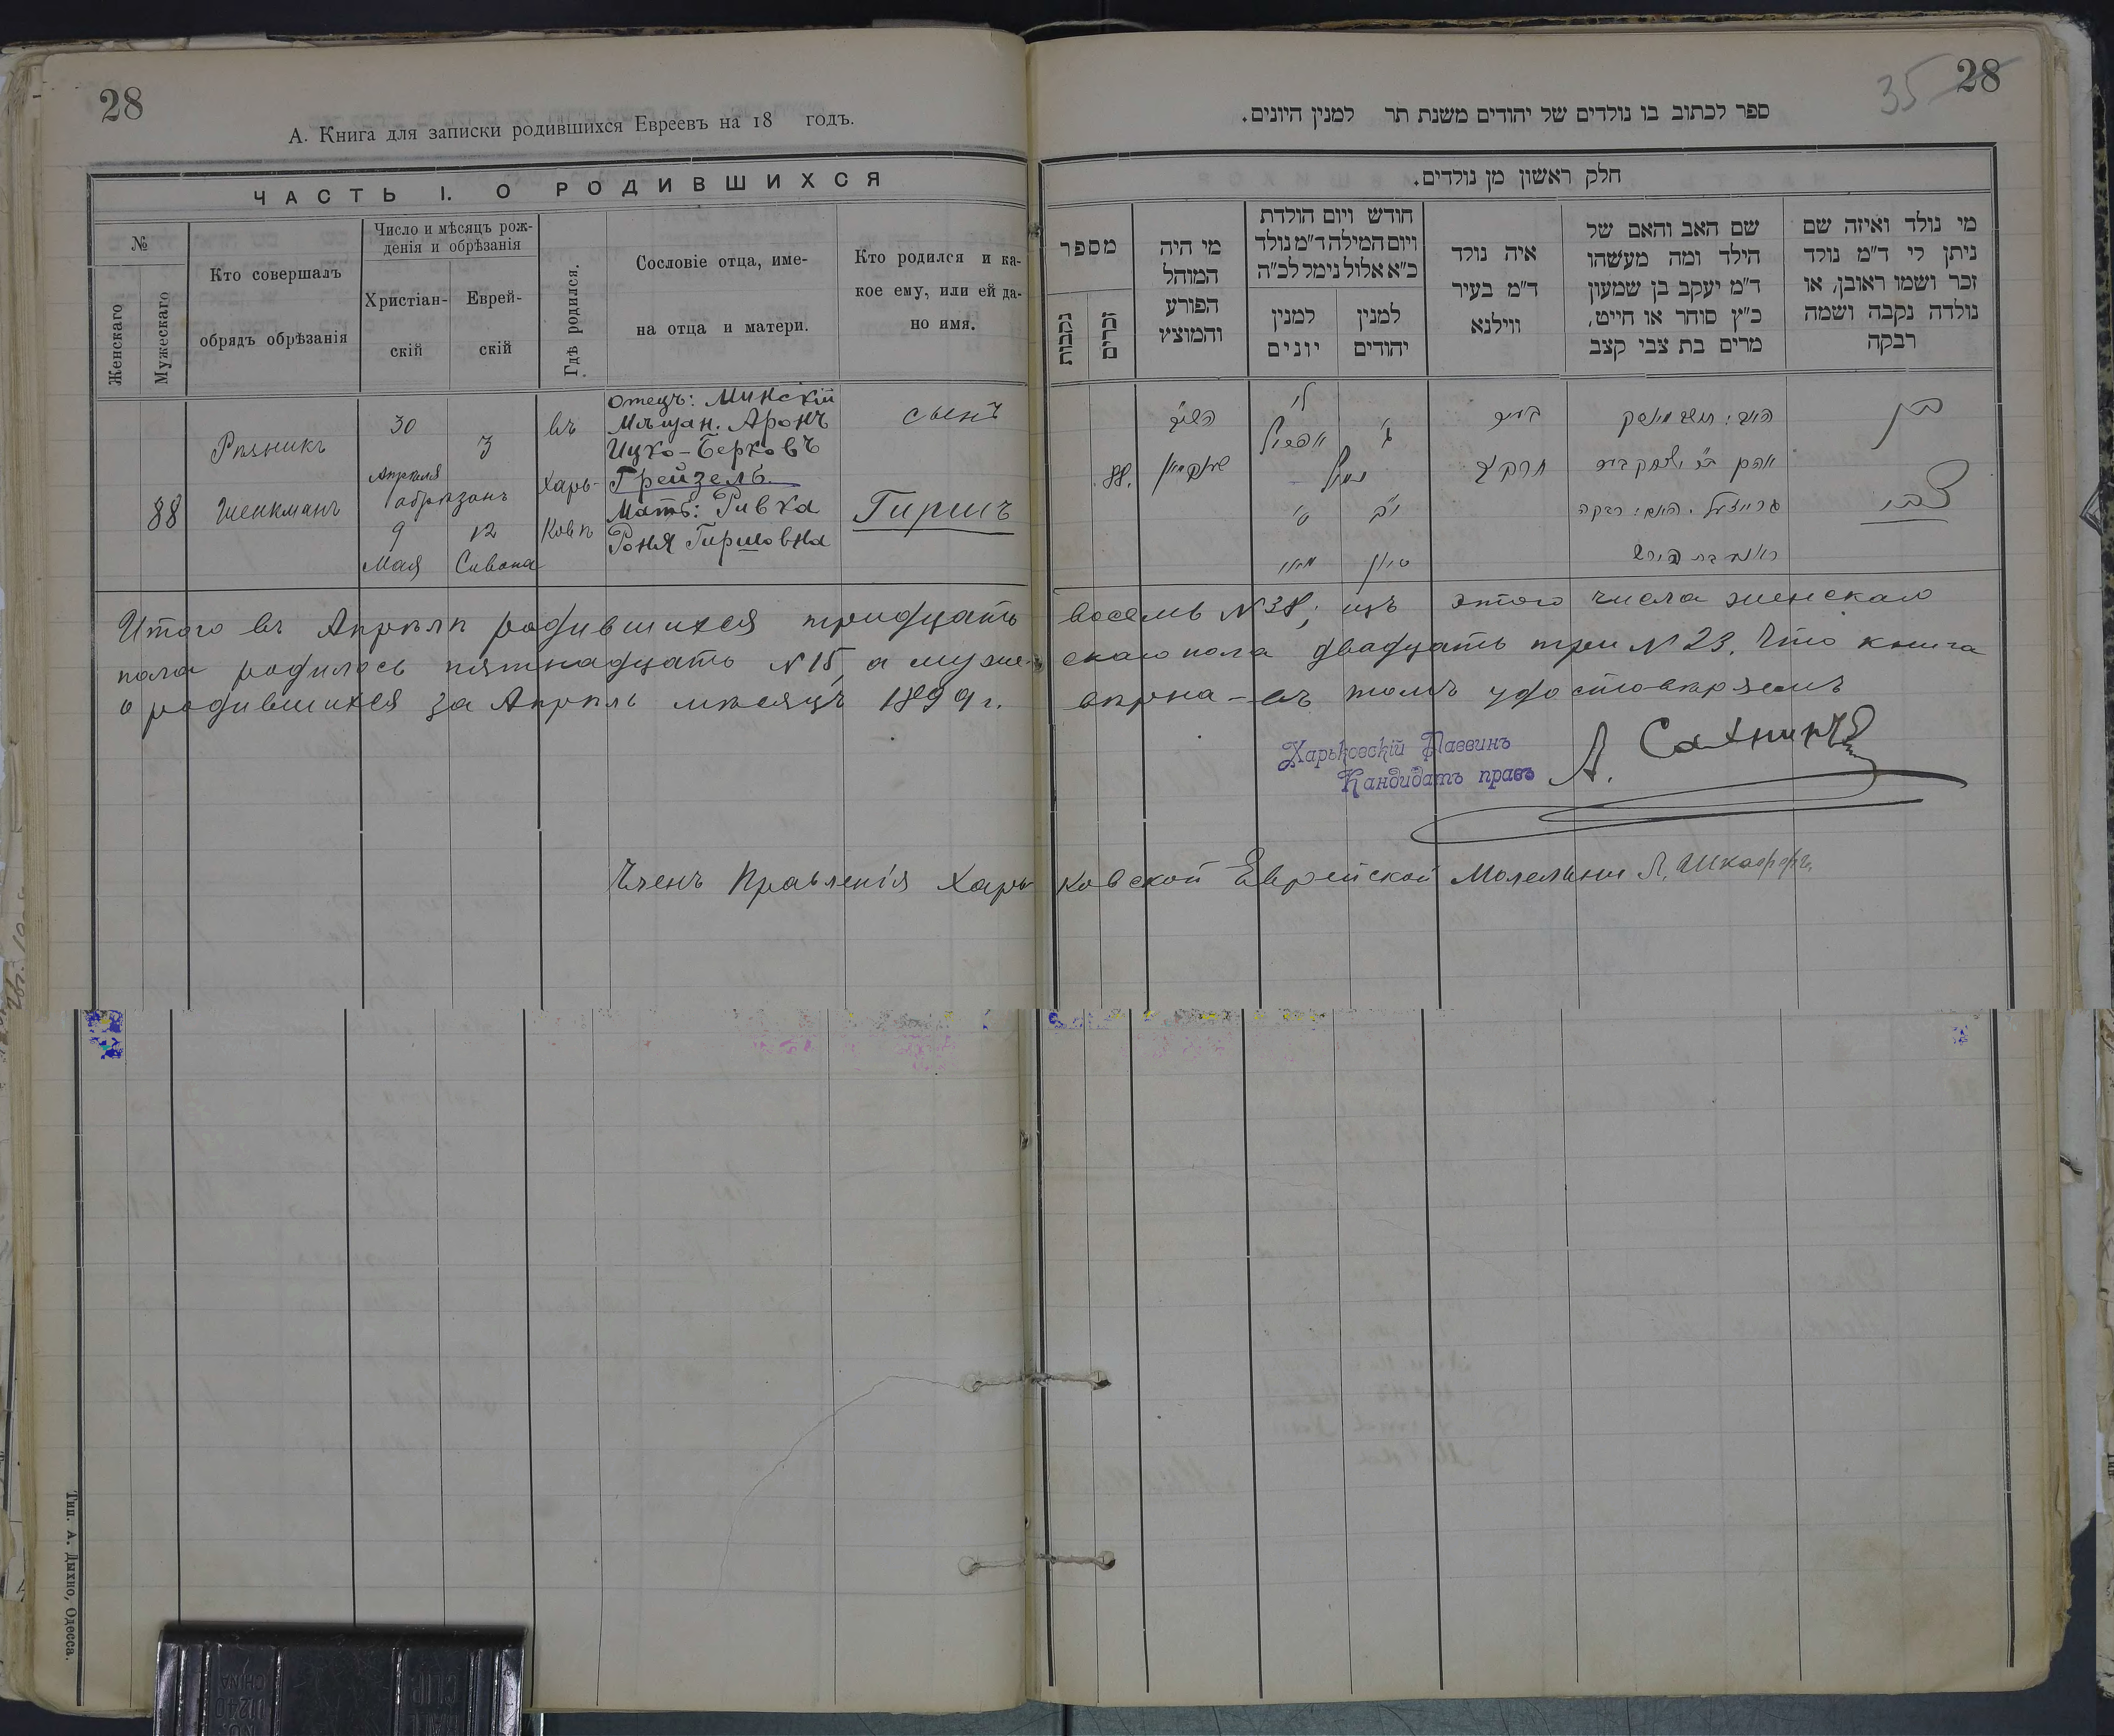 28
А. Книга для записки родившихся Евреевъ на 18 годъ.
ЧАСТЬ I. О РОДИВШИХСЯ
№
Женскаго
Мужескаго
Кто совершалъ
обрядъ обрѣзанія
Число и мѣсяцъ рож-
денія и обрѣзанія
Христіан-
скій
Еврей-
скій
Гдѣ родился.
Сословіе отца, име-
на отца и матери.
Кто родился и ка-
кое ему, или ей да-
но имя.
88
Рѣзникъ
Шенкманъ
30
Апрѣля
обрѣзанъ
9
Мая
3
12
Сивана
въ
Харь-
ковѣ
отецъ: Минскій
Мѣщан. Аронъ
Ицко-Берковъ
Грейзель.
Мать: Ривка
Роня Гиршовна
сынъ
Гиршъ
28
35
ספר לכתוב בו נולדים של יהודים משנת תר למנין היונים.
חלק ראשון מן נולדים.
מספר
נקבות
זכרים
מי היה
המוהל
הפורע
והמוצץ
חודש ויום הולדת
ויום המילה ד"מ נולד
כ"א אלול נימל לכ"ה
למנין
יונים
למנין
יהודים
איה נולד
ד"מ בעיר
ווילנא
שם האב והאם של
הילד ומה מעשהו
ד"מ יעקב בן שמעון
כ"ץ סוחר או חייט,
מרים בת צבי קצב
מי נולד ואיזה שם
ניתן לי ד"מ נולד
זכר ושמו ראובן, או
נולדה נקבה ושמה
רבקה
88.
השו"ב
שענקמאן
ל'
אפריל
נימול
ט'
מאיי
ג'
י"ב
סיון
בעיר
חרקב
אהרן בר' יצחק בער
גרייזעל. האם: רבקה
ראניא בת הירש
בן
צבי
Итого въ Апрѣлѣ родившихся тридцать восемь №38; изъ этого числа женскаго
пола родилось пятнадцать №15, а муже- скаго пола двадцать три №23. Что книга
о родившихся за Апрѣль мѣсяцъ 1899 г. вѣрна - въ томъ удостовѣряемъ
Харьковскій Раввинъ
Кандидатъ правъ
А.
Членъ Правленія Харьковской Еврейской Молельни
Тип. А. Дыхно, Одесса.